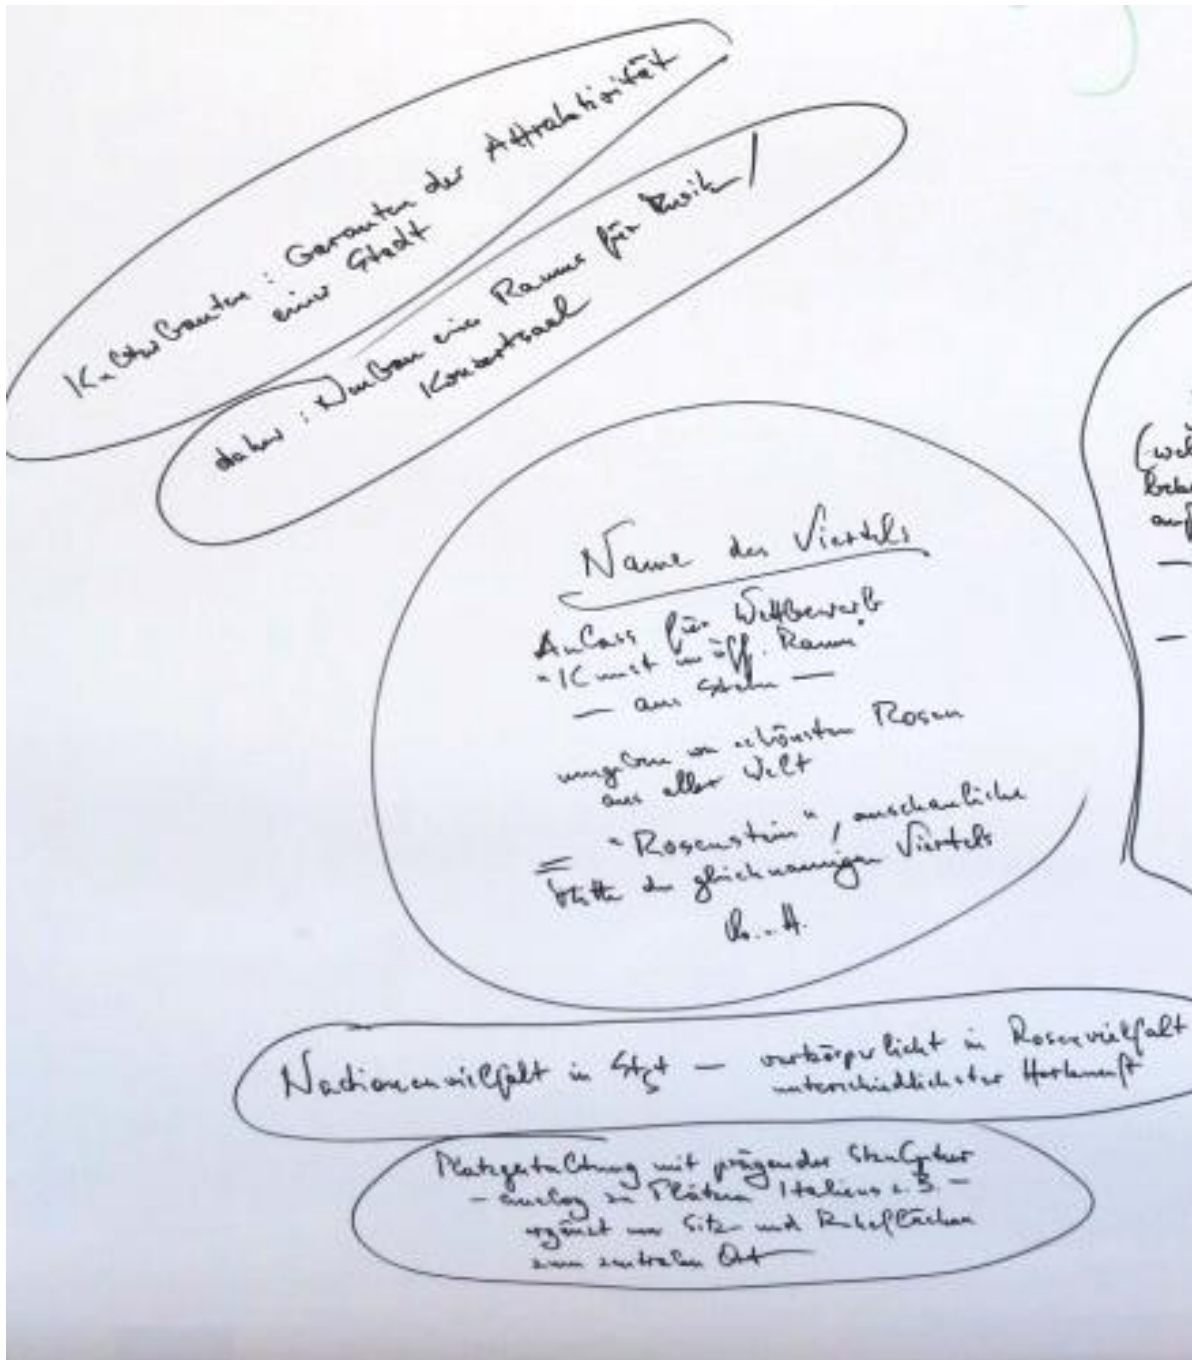 Kulturbauten : Garanten der Attraktivität
einer Stadt
daher : Neubau eines Raums für Musik /
Konzertsaal
Name des Viertels
Anlass für Wettbewerb
"Kunst im öff. Raum"
— aus Stein —
umgeben von schönsten Rosen
aus aller Welt
= "Rosenstein", anschauliche
Mitte des gleichnamigen Viertels
(wel
beka
auf
—
—
Nationenvielfalt in Stgt — verkörperlicht in Rosenvielfalt
unterschiedlichster Herkunft
Platzgestaltung mit prägender Skulptur
– analog zu Plätzen Italiens z.B. –
ergänzt um Sitz- und Ruheflächen
zum zentralen Ort